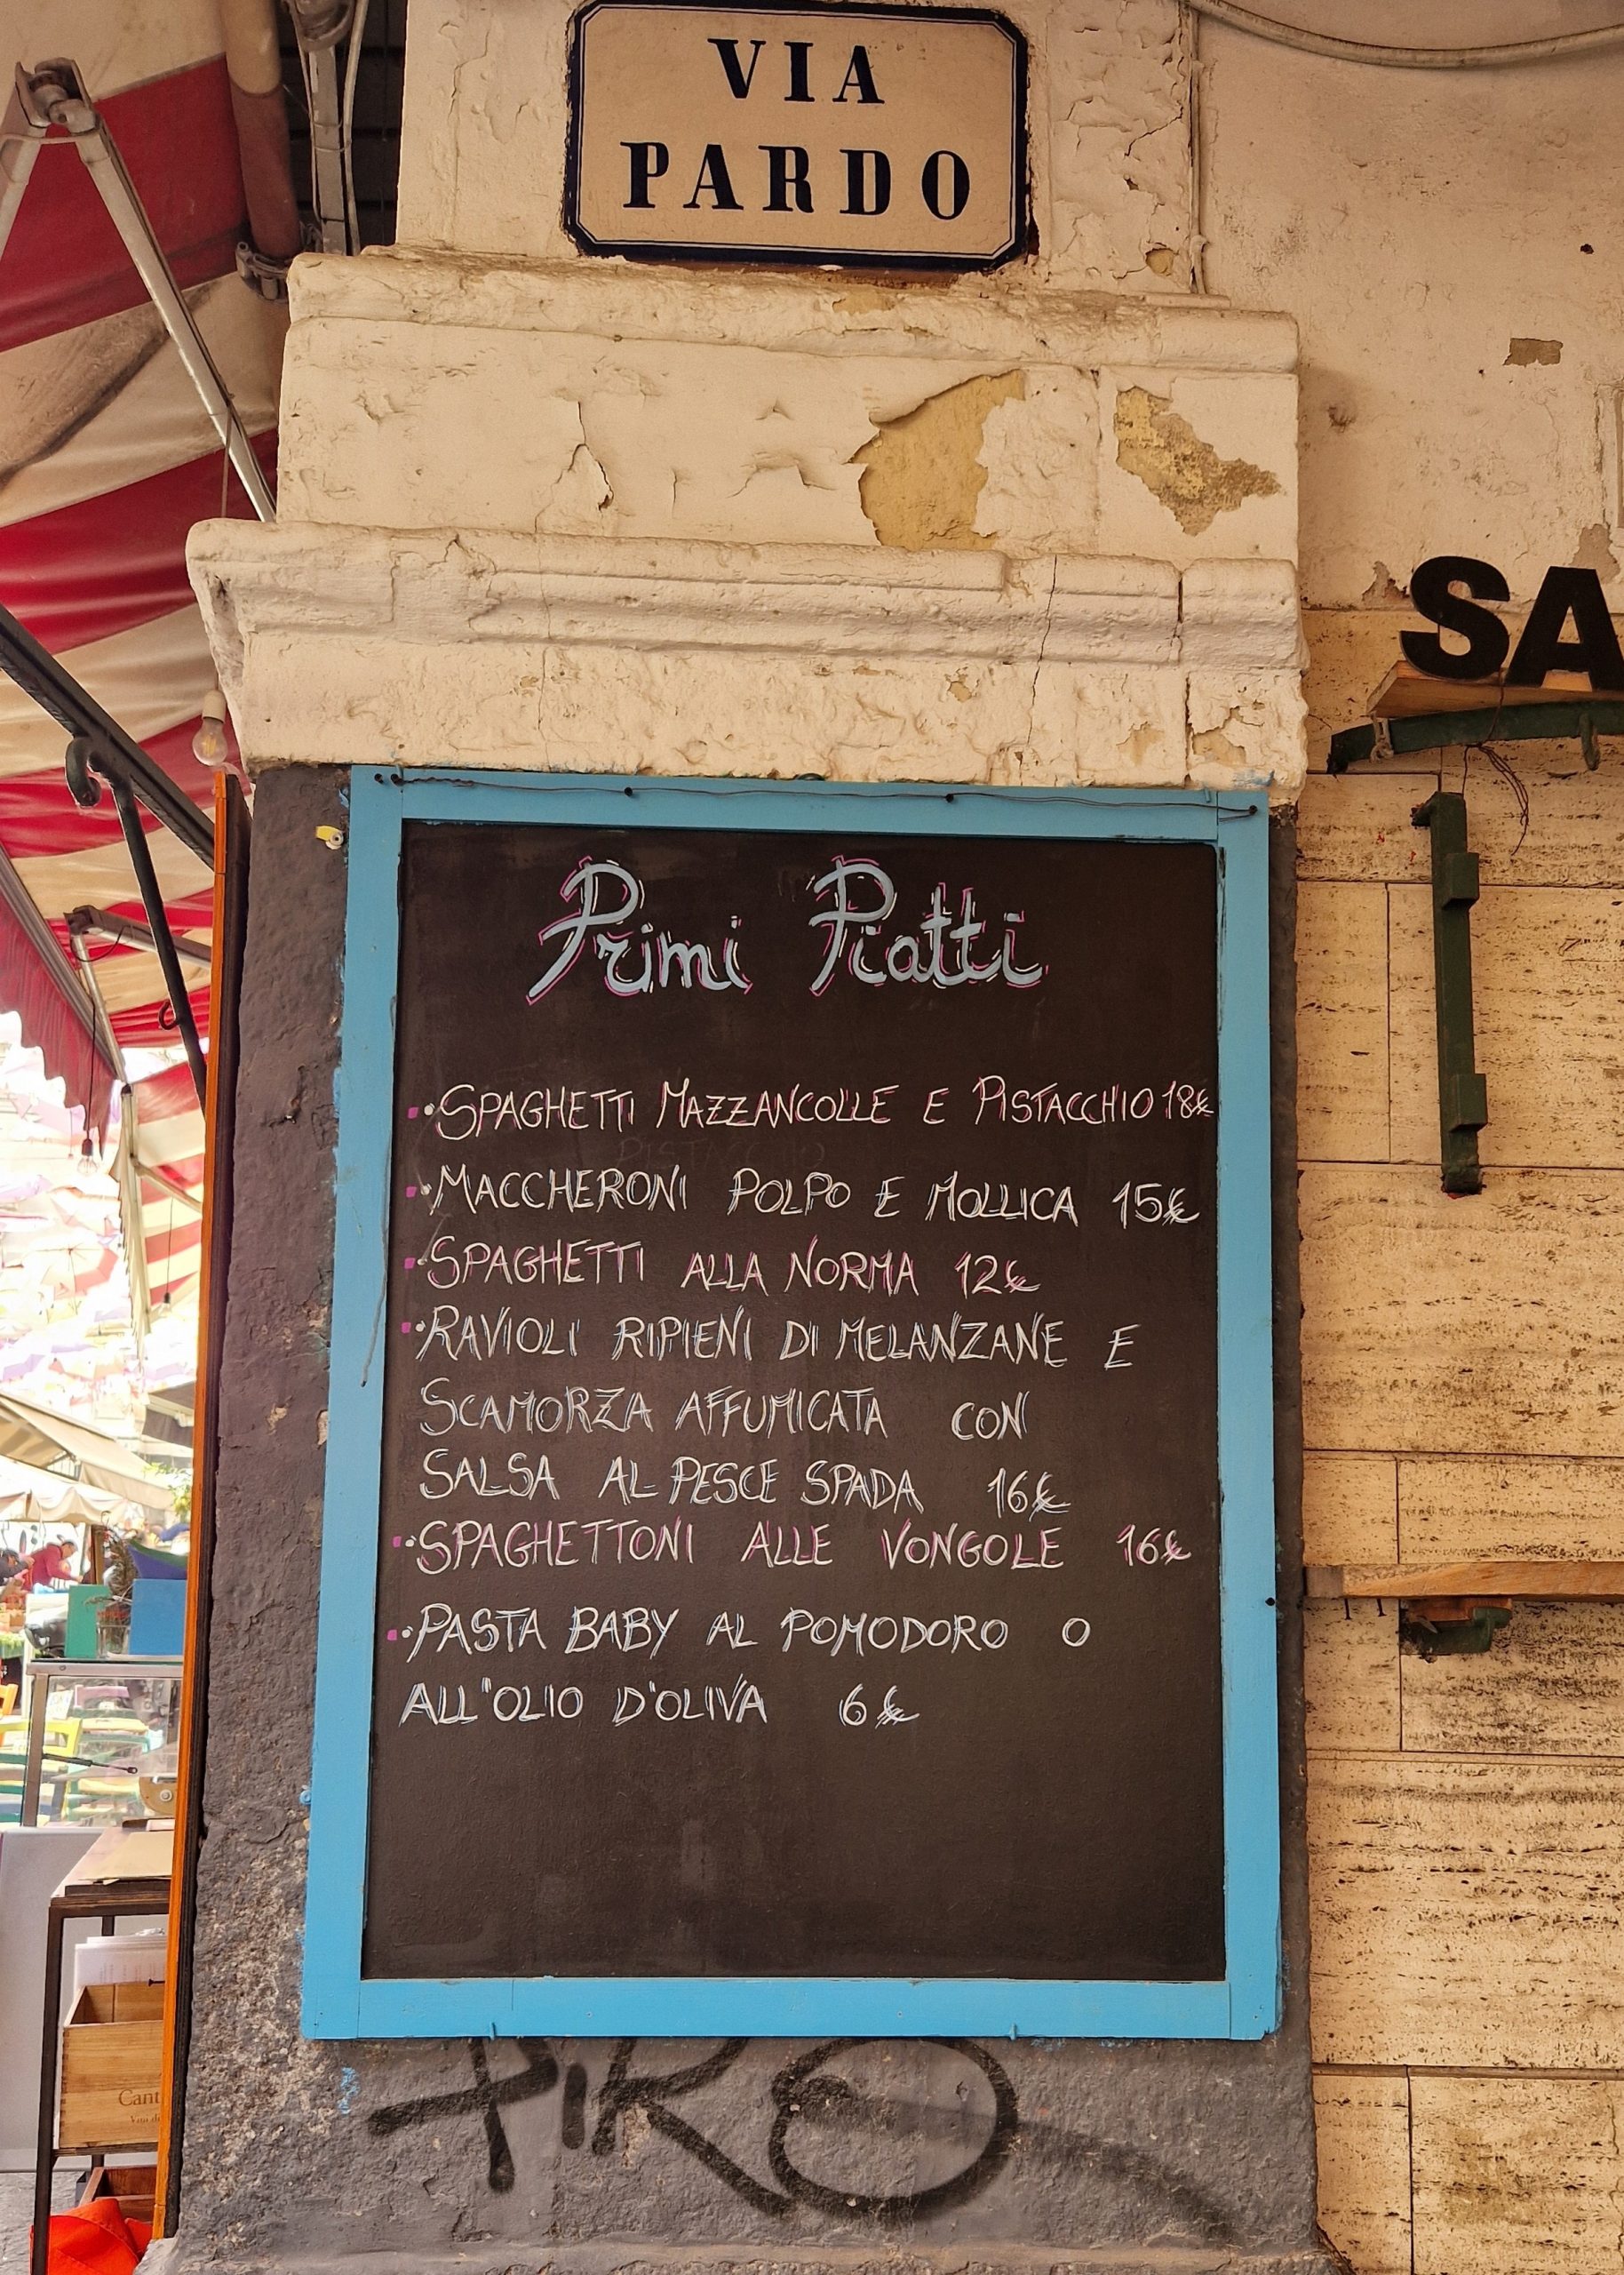 VIA
PARDO
SA
Primi Piatti
• SPAGHETTI MAZZANCOLLE E PISTACCHIO 18€
• MACCHERONI POLPO E MOLLICA 15€
• SPAGHETTI ALLA NORMA 12€
• RAVIOLI RIPIENI DI MELANZANE E
SCAMORZA AFFUMICATA CON
SALSA AL PESCE SPADA 16€
• SPAGHETTONI ALLE VONGOLE 16€
• PASTA BABY AL POMODORO O
ALL'OLIO D'OLIVA 6€
Cant